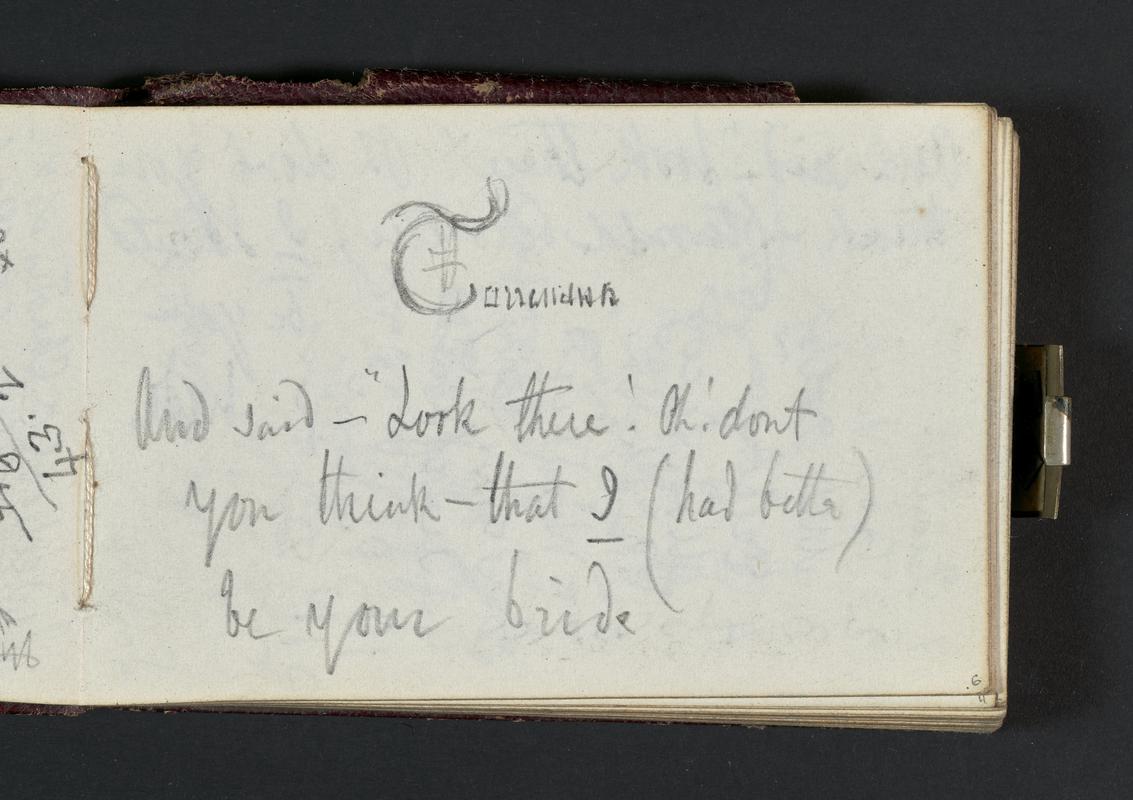 And said – "Look there! Oh! dont
you think – that I (had better)
be your bride
6